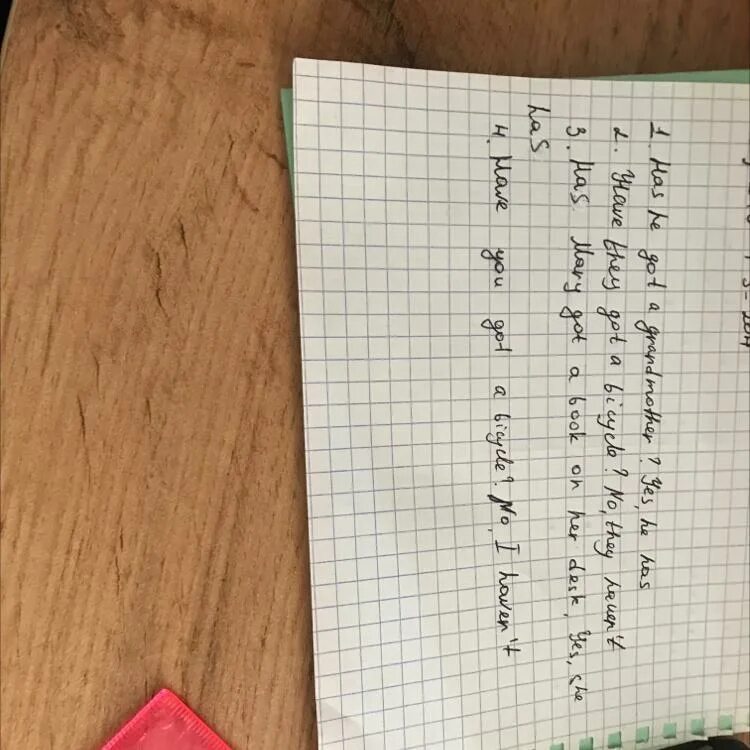 1. Has he got a grandmother? Yes, he has
2. Have they got a bicycle? No, they haven't
3. Has Mary got a book on her desk, Yes, she
has
4. Have you got a bicycle? No, I haven't